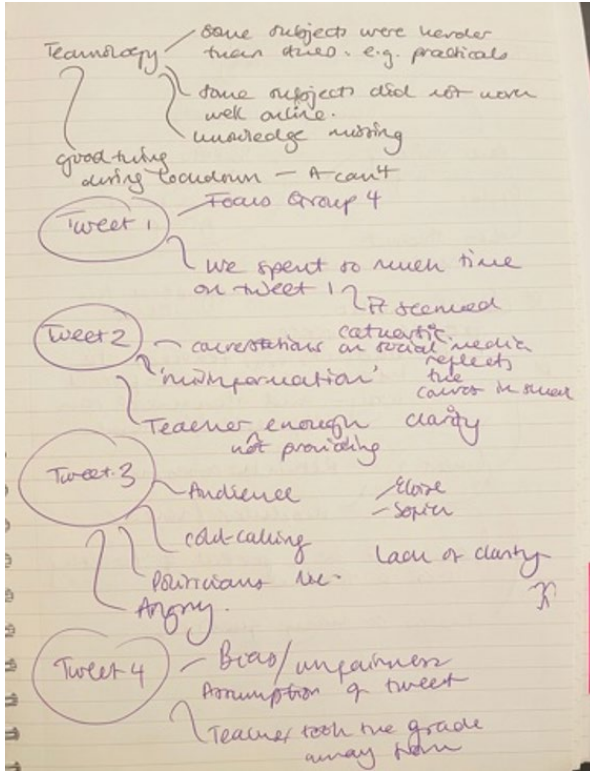 Technology
some subjects were harder
than others. e.g. practicals
some subjects did not work
well online.
knowledge missing
good thing
during lockdown – A can't
Tweet 1
Focus Group 4
we spent so much time
on tweet 1
It seemed
cathartic
Tweet 2
conversations on social media
reflects
the
'misinformation'
Teacher enough clarity
not providing
Tweet 3
Audience
Eloise
Sophia
cold-calling
Lack of clarity
Politicians lie.
Angry.
Tweet 4
Bias/unfairness
Assumption of tweet
Teacher took the grade
away from